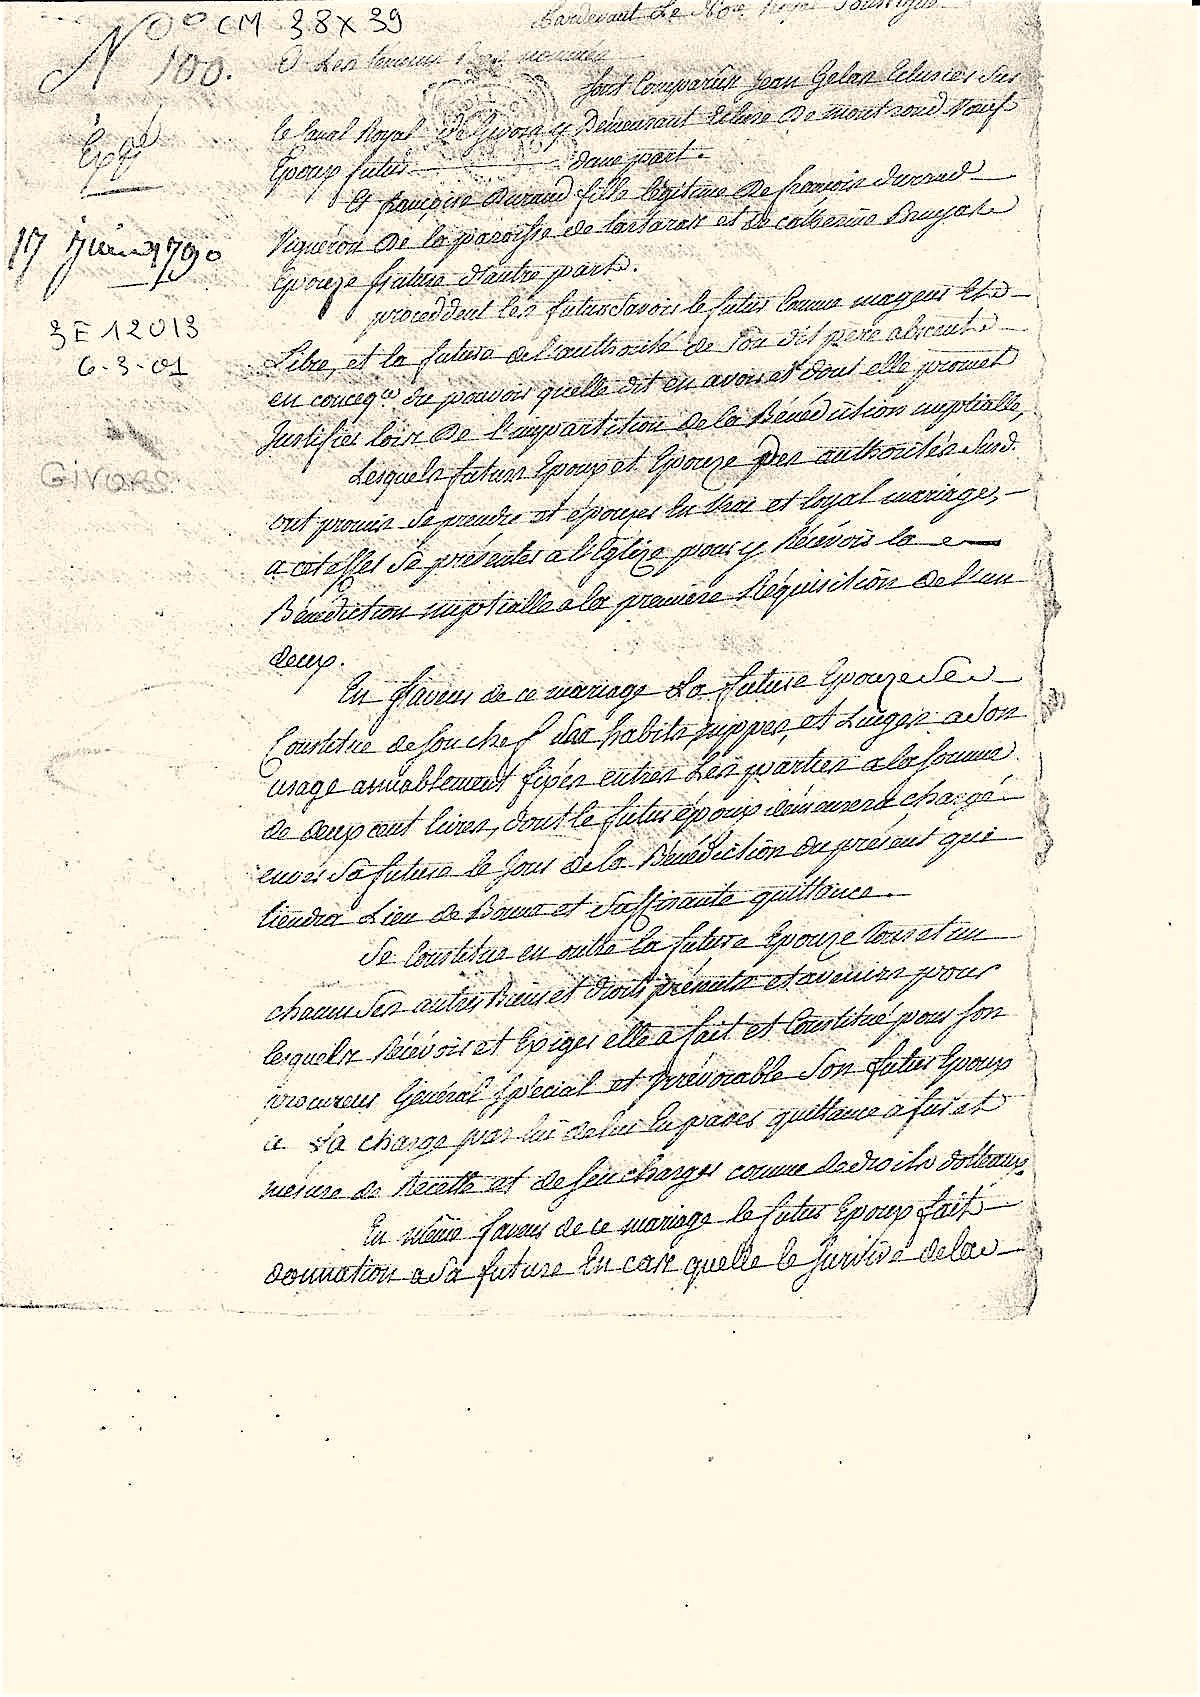 N° CM 38 x 39
100.
Pardevant Le Nore Royal Soussigné
& Les temoins Bas nommés
Sont Comparus Jean Gelas Eclusier Sur
le Canal Royal de Givors y Demeurant Ecluse De montrond Veuf
Epoux futur d'une part.
Et françoise Durand fille legitime De francois durand
Vigneron De la paroisse de tartaras et De catherine
Epouze future d'autre part.
proceddent les futurs savoir le futur comme mayeur Et
Libre, et la future de l'authorité de Son dit pere absent
en conceqce du pouvoir quelle dit en avoir et dont elle promet
Justifier lors De l'impartition de la Bénédiction nuptialle,
Lesquels futurs Epoux et Epouze des authorités Susd.
ont promis Se prendre et épouzer En vrai et loyal mariage,
a cet effet Se présenter a l'Eglize pour y Récévoir la
Bénédiction nuptialle a la premiere Réquisition de l'un
deux.
En faveur de ce mariage La future Epouze Se
Constitue de Son chef Ses habits nippes et Linges a Son
usage amiablement fixés entres Les parties a la Somme
de deux cent livres, dont le futur époux démeurera chargé
enver Sa future le Jour de la Bénédiction du présent qui
tiendra Lieu de Bonne et Suffisante quittance.
Se Constitue en outre la future Epouze tous et un
chacun Ses autres Biens et droits présents et avenirs pour
lesquels Récévoir et Exiger elle a fait et Constitué pour Son
procureur Général Spécial et Irrévocable Son futur Epoux
a la charge par lui de lui En passer quittance a fur et
mesure de Recette et de Sen charger comme de droits dotteaux,
En même faveur de ce mariage le futur Epoux fait
donnation a Sa future En cas quelle le Survive de la
Expé
17 juin 1790
3 E 12013
6-3-01
GIVORS